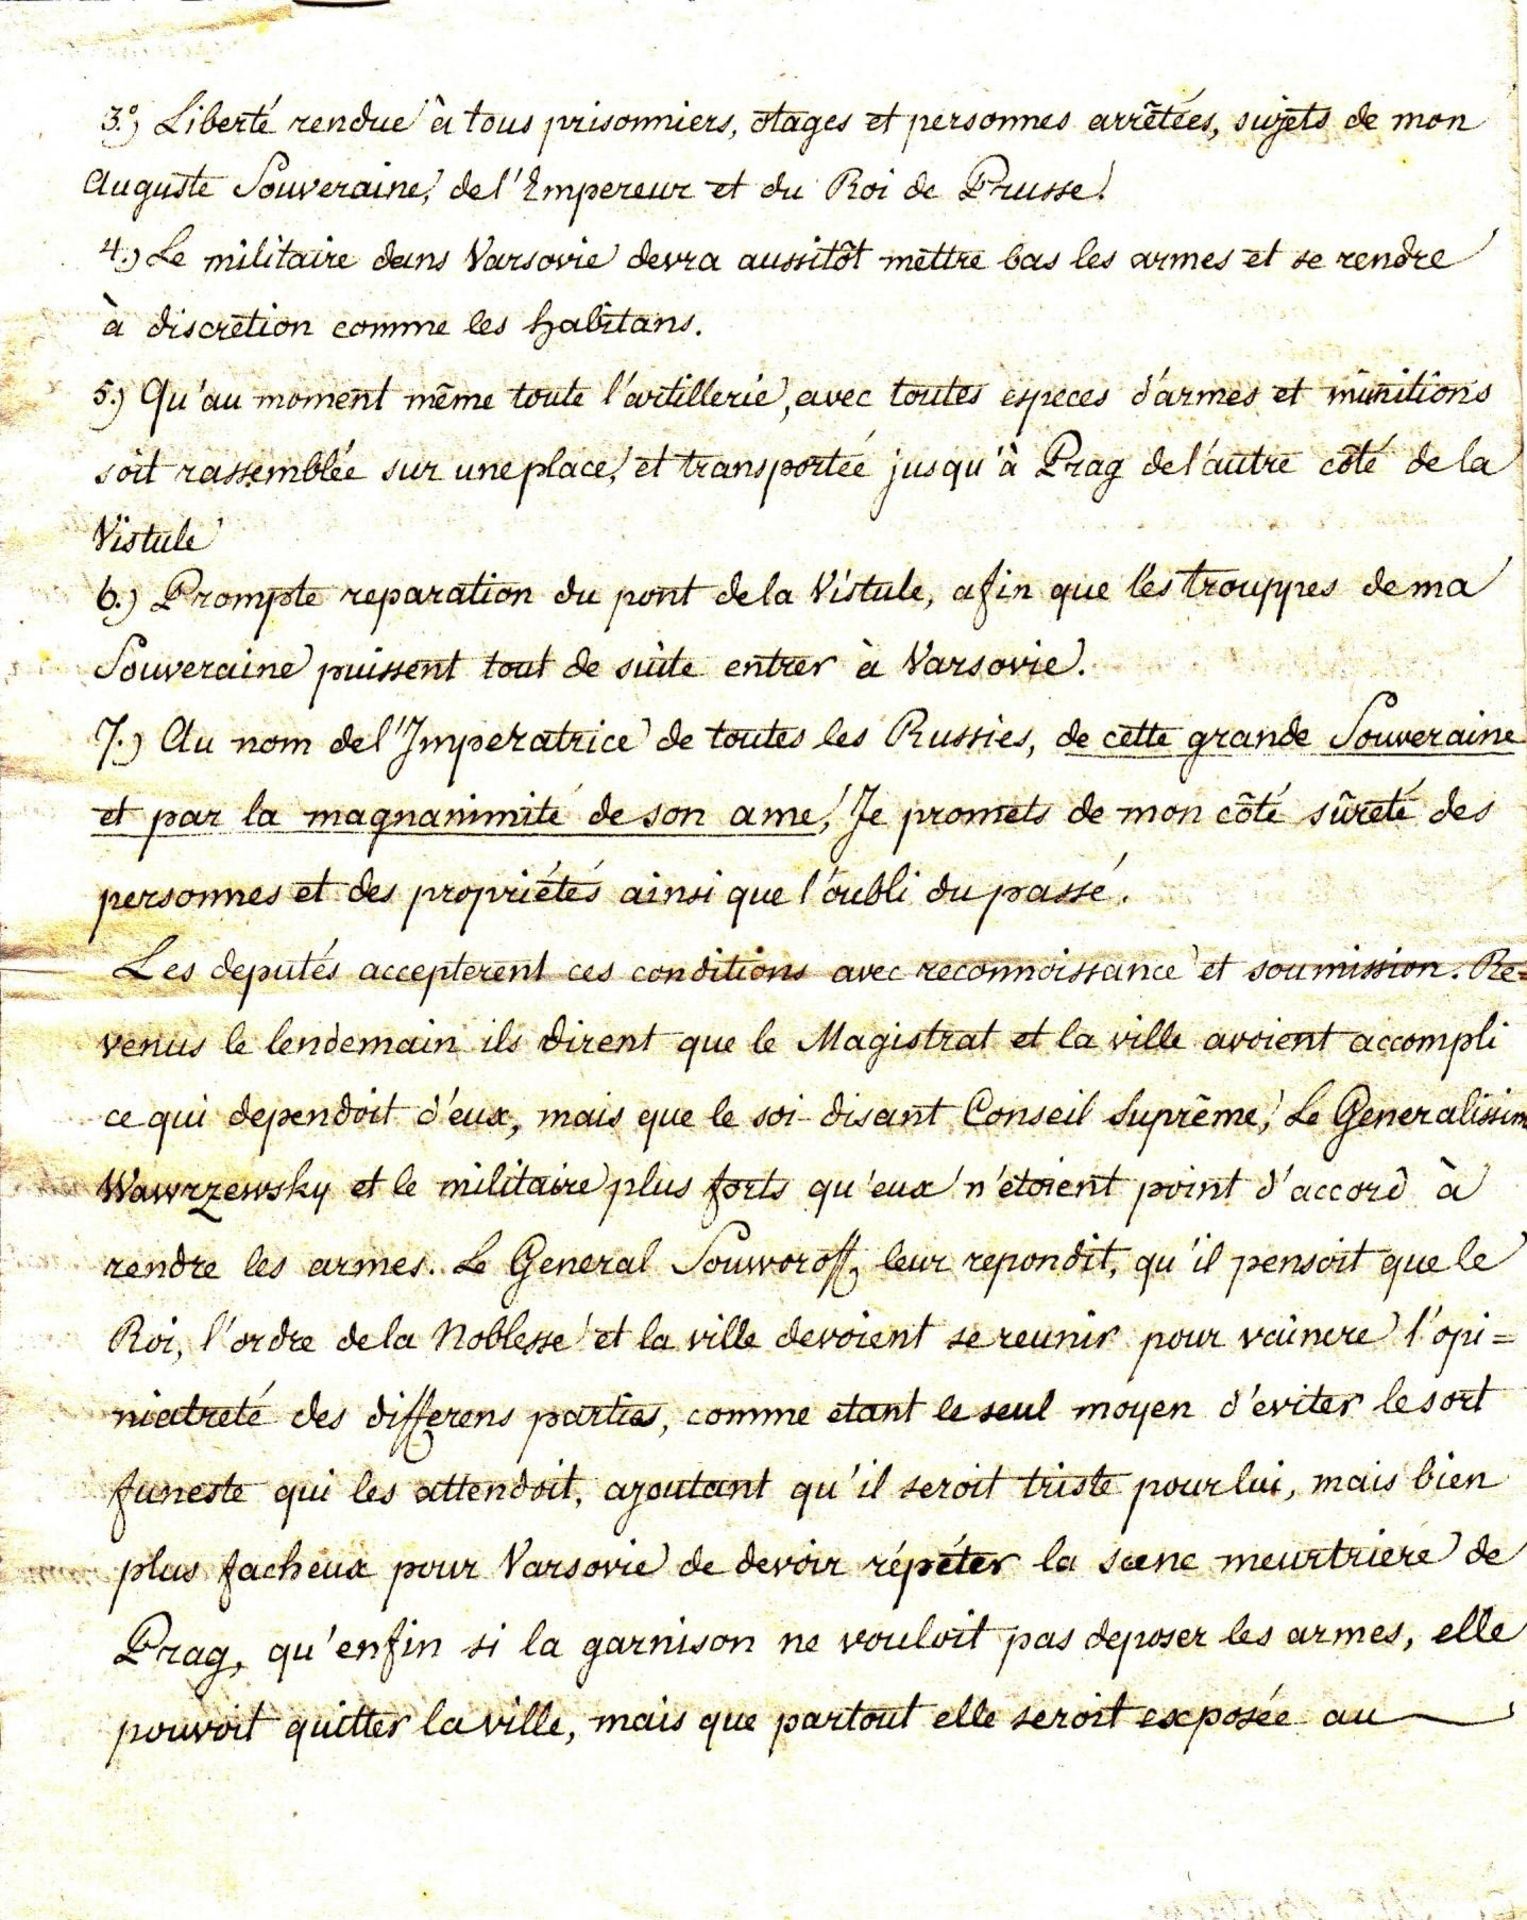 3.°) Liberté rendue à tous prisonniers, otages et personnes arrêtées, sujets de mon
Auguste Souveraine, de l'Empereur et du Roi de Prusse.
4.) Le militaire dans Varsovie devra aussitôt mettre bas les armes et se rendre
à discretion comme les habitans.
5.) Qu'au moment même toute l'artillerie, avec toutes especes d'armes et munitions
soit rassemblée sur une place, et transportée jusqu'à Prag de l'autre côté de la
Vistule
6.) Prompte reparation du pont de la Vistule, afin que les trouppes de ma
Souveraine puissent tout de suite entrer à Varsovie.
7.) Au nom de l'Imperatrice de toutes les Russies, de cette grande Souveraine
et par la magnanimité de son ame, Je promets de mon côté sûreté des
personnes et des propriétés ainsi que l'oubli du passé.
Les deputés accepterent ces conditions avec reconnoissance et soumission. Re=
venus le lendemain ils dirent que le Magistrat et la ville avoient accompli
ce qui dependoit d'eux, mais que le soi-disant Conseil Suprême, Le Generalissim
Wawrzewsky et le militaire plus forts qu'eux n'étoient point d'accord à
rendre les armes. Le General Souworoff, leur repondit, qu'il pensoit que le
Roi, l'ordre de la Noblesse et la ville devoient se reunir pour vaincre l'opi=
niatreté des differens parties, comme etant le seul moyen d'eviter le sort
funeste qui les attendoit, ajoutant qu'il seroit triste pour lui, mais bien
plus facheux pour Varsovie de devoir répéter la scene meurtriere de
Prag, qu'enfin si la garnison ne vouloit pas deposer les armes, elle
pouvoit quitter la ville, mais que partout elle seroit exposée au